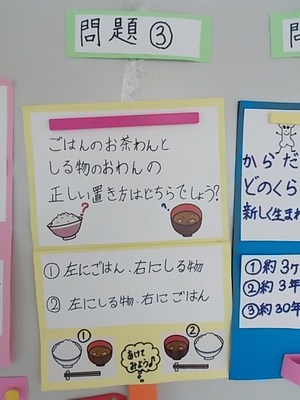 問題③
ごはんのお茶わんと
しる物のおわんの
正しい置き方はどちらでしょう?
?
?
①左にごはん、右にしる物
②左にしる物、右にごはん
①
②
あけて
みよう♪
からだ
どのくら
新しく生まれ
①約3ヶ
②約3年
③約30年